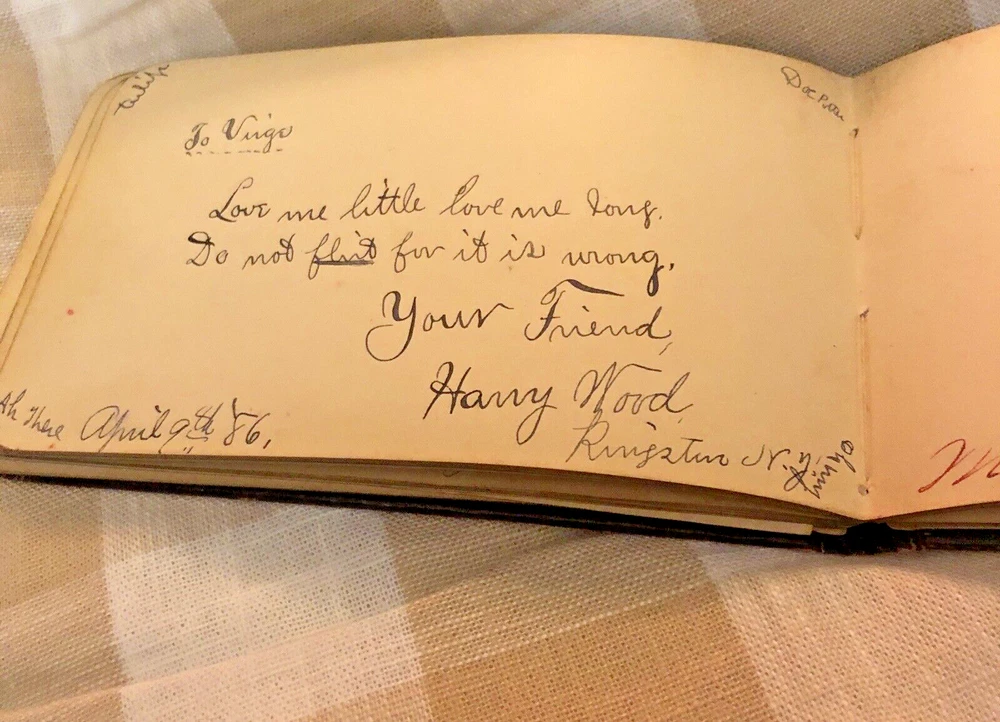 To Virge
Love me little love me long.
Do not flirt for it is wrong.
Your Friend,
Harry Wood
Kingston N.Y.
Ah There April 9th '86.
M